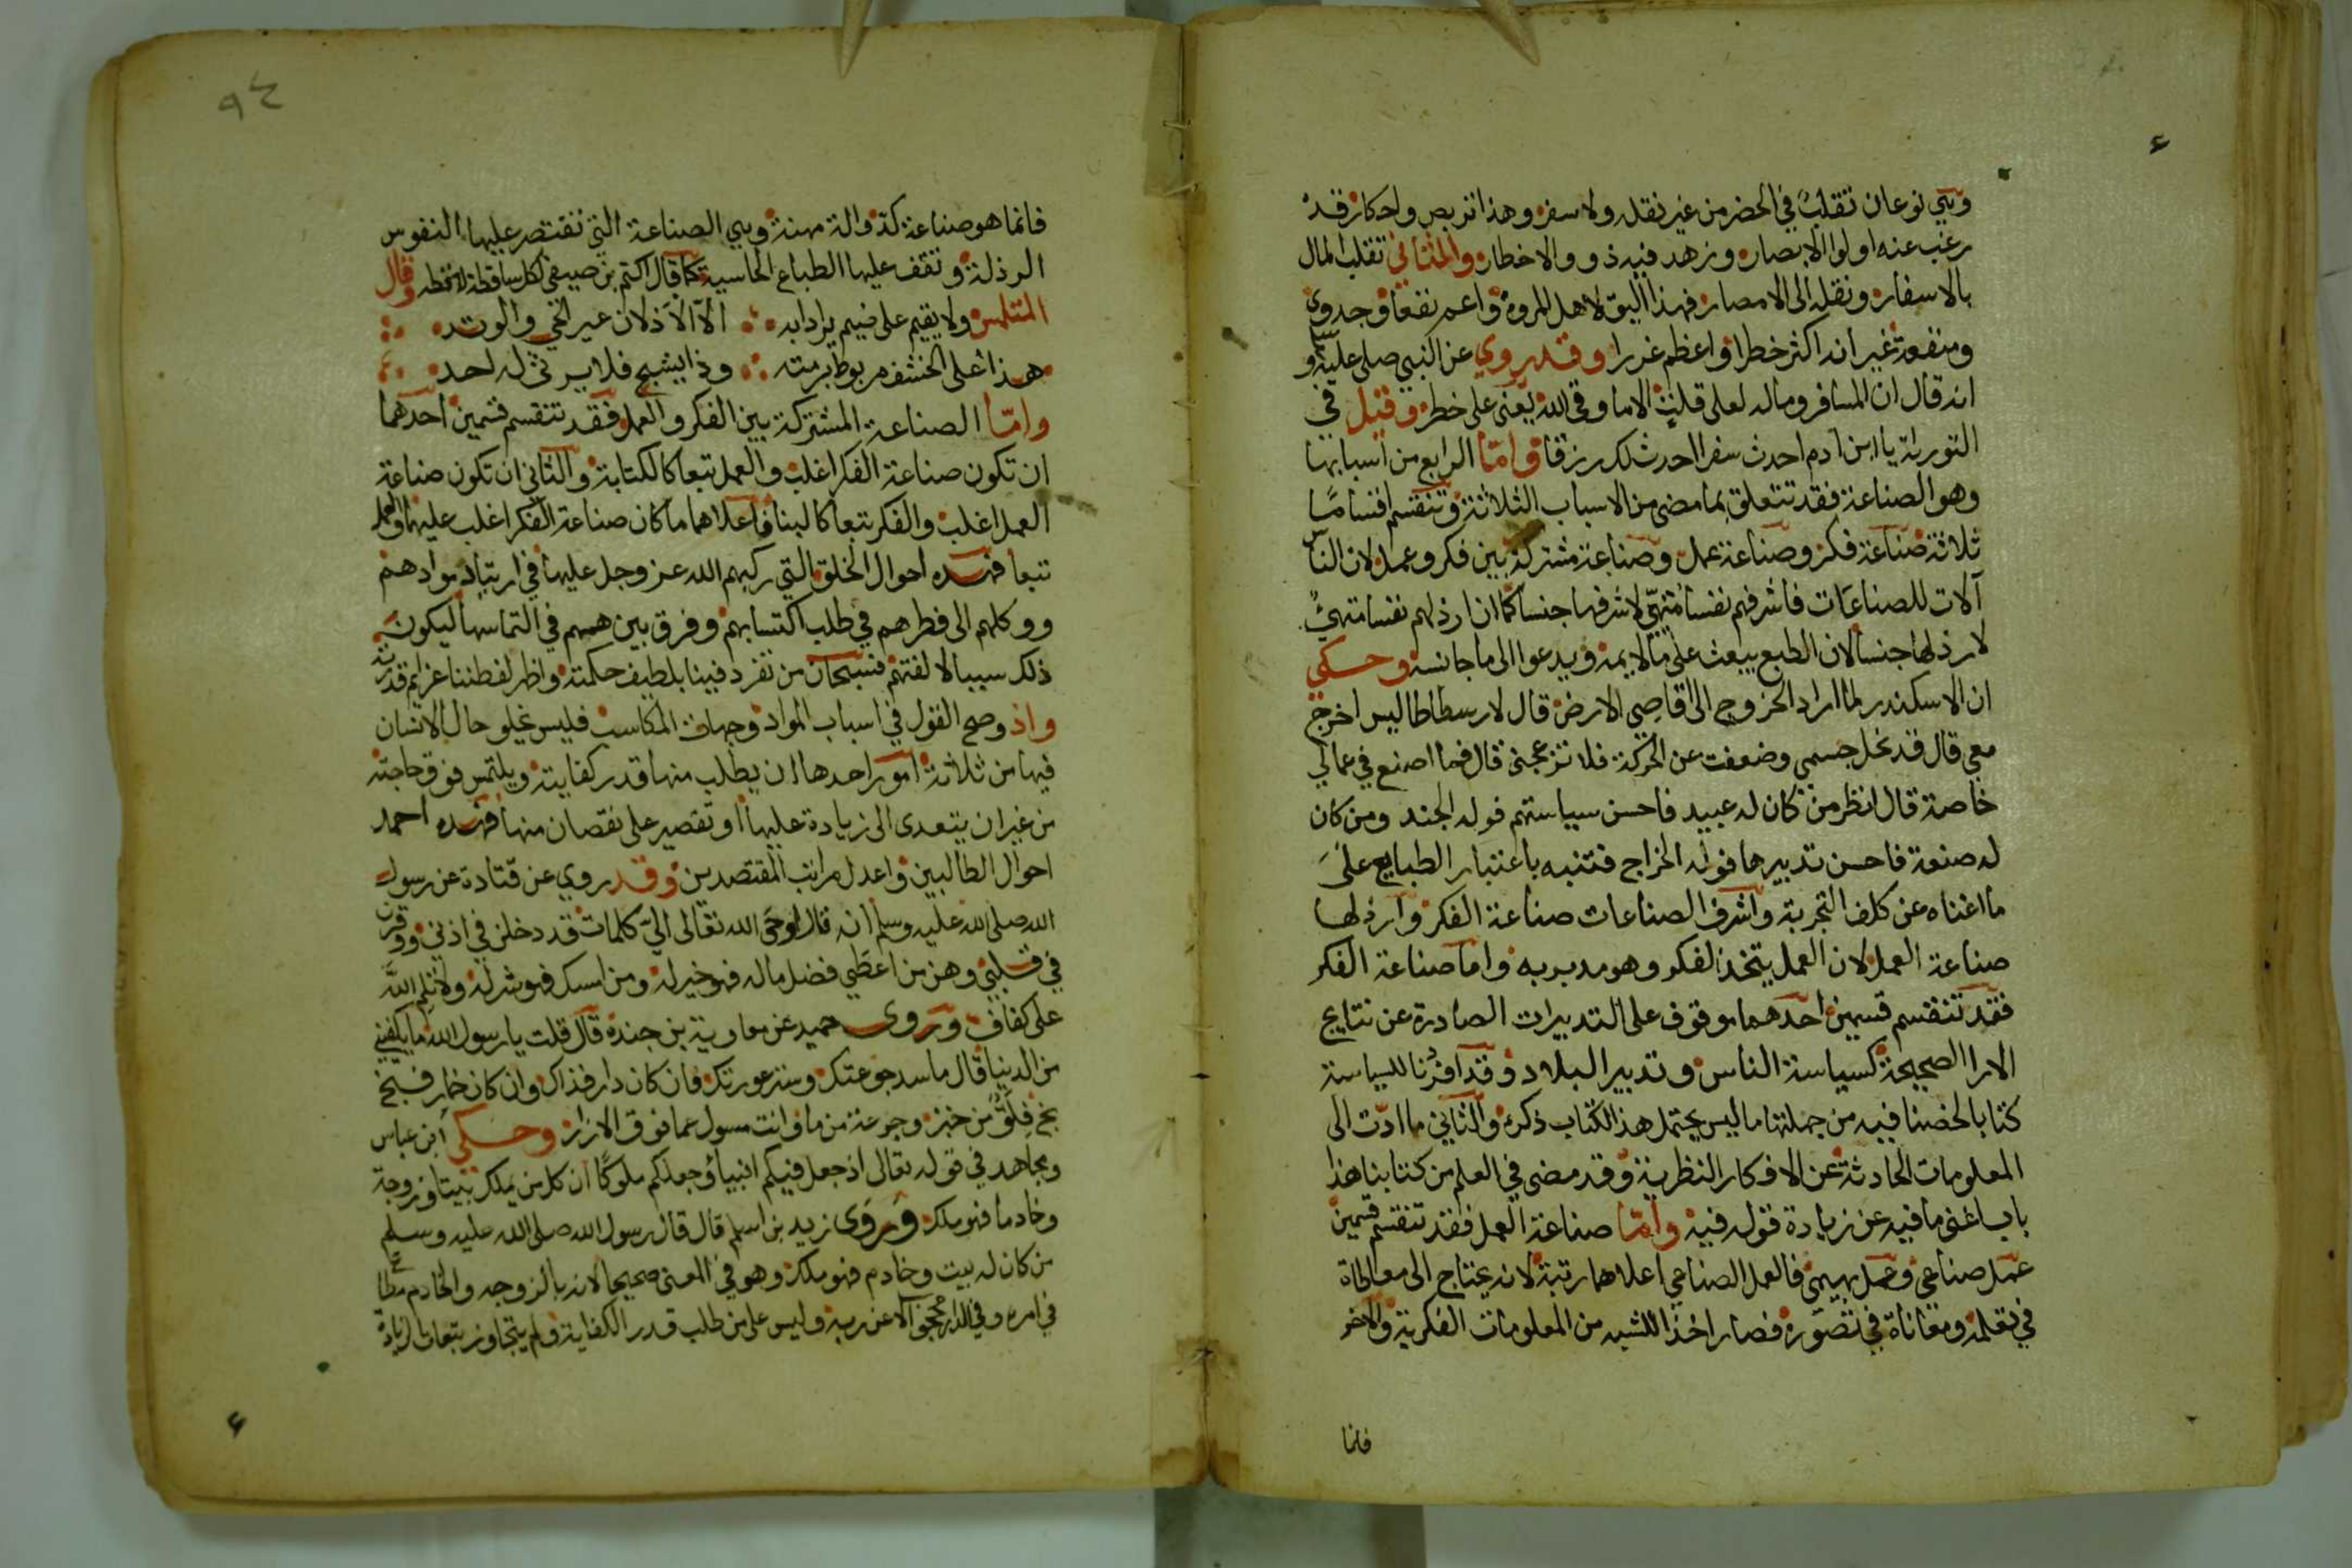 وهي نوعان تقلب في الحضر من غير نقله ولا سفر وهذا تربص واحتكار قد
رغب عنه اولوا الابصار وزهد فيه ذوو الاخطار والثاني تقلب المال
بالاسفار ونقله الى الامصار فهذا اليق لاهل المروة واعم نفعا وجدوى
ومنفعة غير انه اكثر خطرا واعظم غررا وقد روي عن النبي صلى عليه وسلم
انه قال ان المسافر وماله لعلى قلت الا ما وقى الله يعنى على خطر وقيل في
التوراة يا ابن ادم احدث سفرا احدث لك رزقا واما الرابع من اسبابها
وهو الصناعة فقد تتعلق بما مضى من الاسباب الثلاثة وتنقسم اقساما
ثلاثة صناعة فكر وصناعة عمل وصناعة مشتركة بين فكر وعمل لان الناس
آلات للصناعات فاشرفهم نفسا متهيئ لاشرفها جنسا كما ان ارذلهم نفسا متهيئ
لارذلها جنسا لان الطبع يبعث على ما لايمه ويدعوا الى ما جانسه وحكي
ان الاسكندر لما اراد الخروج الى اقاصي الارض قال لارسطاطاليس اخرج
معي قال قد نحل جسمي وضعفت عن الحركة فلا تزعجني قال فما اصنع في عمالي
خاصة قال انظر من كان له عبيد فاحسن سياستهم فوله الجند ومن كان
له صنعة فاحسن تدبيرها فوله الخراج فتنبه باعتبار الطبايع على
ما اغناه عن كلف التجربة واشرف الصناعات صناعة الفكر وارذلها
صناعة العمل لان العمل يتخذ الفكر وهو مدبر به واما صناعة الفكر
فقد تنقسم قسمين احدهما موقوف على التدبيرات الصادرة عن نتايج
الارا الصحيحة كسياسة الناس وتدبير البلاد وقد افردنا للسياسة
كتابا لخصنا فيه من جملتها ما ليس يحتمل هذا الكتاب ذكره والثاني ما ادت الى
المعلومات الحادثة عن الافكار النظرية وقد مضى في العلم من كتابنا هذا
باب اغنى ما فيه عن زيادة قوله فيه واما صناعة العمل فقد تنقسم قسمين
عمل صناعي وعمل بهيمي فالعمل الصناعي اعلاهما رتبة لانه يحتاج الى معاطاة
في تعلمه ومعاناة في تصوره فصار اخذا للشبه من المعلومات الفكرية والاخر
فانما
٩٤
فانما هو صناعة كد والة مهنة وهي الصناعة التي تقتصر عليها النفوس
الرذلة وتقف عليها الطباع الخاسية كما قال اكثم بن صيفي لكل ساقطة لاقطة وقال
المتلمس ولا يقيم على ضيم يراد به الا الاذلان عير الحي والوتد
هذا على الخشف مربوط برمته وذا يشج فلا يرثى له احد
واما الصناعة المشتركة بين الفكر والعمل فقد تنقسم قسمين احدهما
ان تكون صناعة الفكر اغلب والعمل تبعا كالكتابة والثاني ان تكون صناعة
العمل اغلب والفكر تبعا كالبنا فاعلاهما ما كان صناعة الفكر اغلب عليها والعمل
تبعا فهذه احوال الخلق التي ركبهم الله عز وجل عليها في ارتياد موادهم
ووكلهم الى فطرهم في طلب اكتسابهم وفرق بين هممهم في التماسها ليكون
ذلك سببا لالفتهم فسبحان من تفرد فينا بلطيف حكمته واظهر لفطننا عزايم قدرته
واذ وضح القول في اسباب المواد وجهات المكاسب فليس يخلو حال الانسان
فيها من ثلاثة امور احدها ان يطلب منها قدر كفايته ويلتمس فوق حاجته
من غير ان يتعدى الى زيادة عليها او تقصير على نقصان منها فهذه احمد
احوال الطالبين واعدل مراتب المقتصدين وقد روي عن قتادة عن رسول
الله صلى الله عليه وسلم انه قال اوحى الله تعالى الي كلمات قد دخلن في اذني ووقرن
في قلبي وهن من اعطي فضل ماله فهو خير له ومن امسك فهو شر له ولا تلم الله
على كفاف وروى حميد عن معاوية بن جندة قال قلت يا رسول الله ما يكفيني
من الدنيا قال ما سد جوعتك وستر عورتك فان كان دار فذاك وان كان خمار فبخ
بخ فلق من خبز وجوعة من ما وانت مسول عما فوق الازار وحكي ابن عباس
ومجاهد في قوله تعالى اذ جعل فيكم انبيا وجعلكم ملوكا ان كل من يملك بيتا وزوجة
وخادما فهو ملك وروى زيد بن اسلم قال قال رسول الله صلى الله عليه وسلم
من كان له بيت وخادم فهو ملك وهو في المعنى صحيحا لانه بالزوجة والخادم مطاع
في امره وفي الدار محجوبا الا عن ربه وليس على من طلب قدر الكفاية ولم يتجاوز تبعات الزيادة